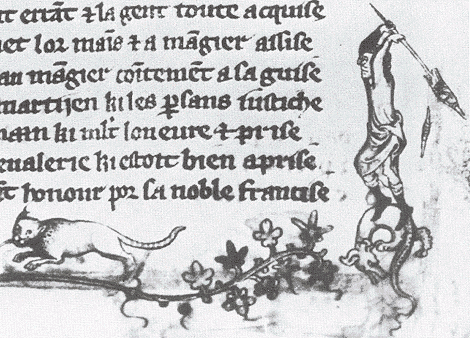 errãt ⁊ la gent toute acquise
lor mais ⁊ a mãgier assise
mãgier cõtemẽt a la guise
martijen ki les ꝑsans iustiche
ki ml't loneure ⁊ prise
eualerie ki estoit bien aprise
honour por sa noble francise